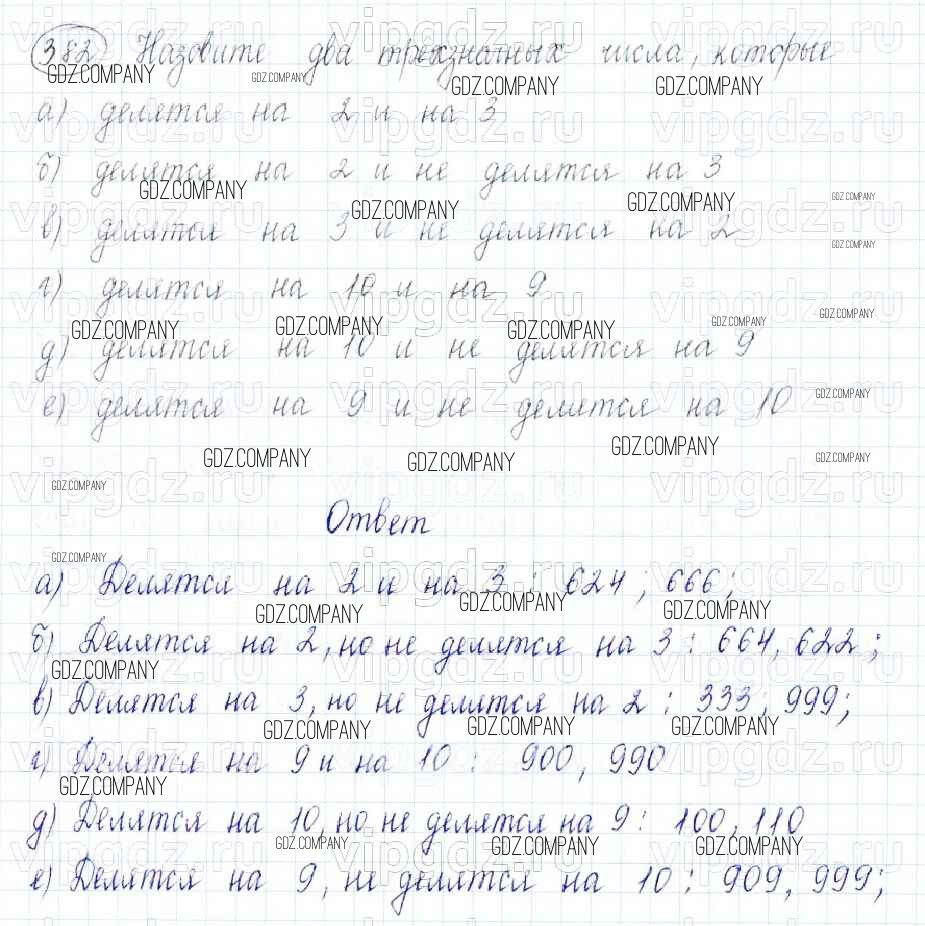 382 Назовите два трехзначных числа, которые
а) делятся на 2 и на 3
б) делятся на 2 и не делятся на 3
в) делятся на 3 и не делятся на 2
г) делятся на 10 и на 9
д) делятся на 10 и не делятся на 9
е) делятся на 9 и не делятся на 10
Ответ
а) Делятся на 2 и на 3 : 624 ; 666 ;
б) Делятся на 2, но не делятся на 3 : 664, 622 ;
в) Делятся на 3, но не делятся на 2 : 333 ; 999 ;
г) Делятся на 9 и на 10 : 900, 990
д) Делятся на 10, но не делятся на 9 : 100, 110
е) Делятся на 9, не делятся на 10 : 909, 999 ;
vipgdz.ru
GDZ.COMPANY